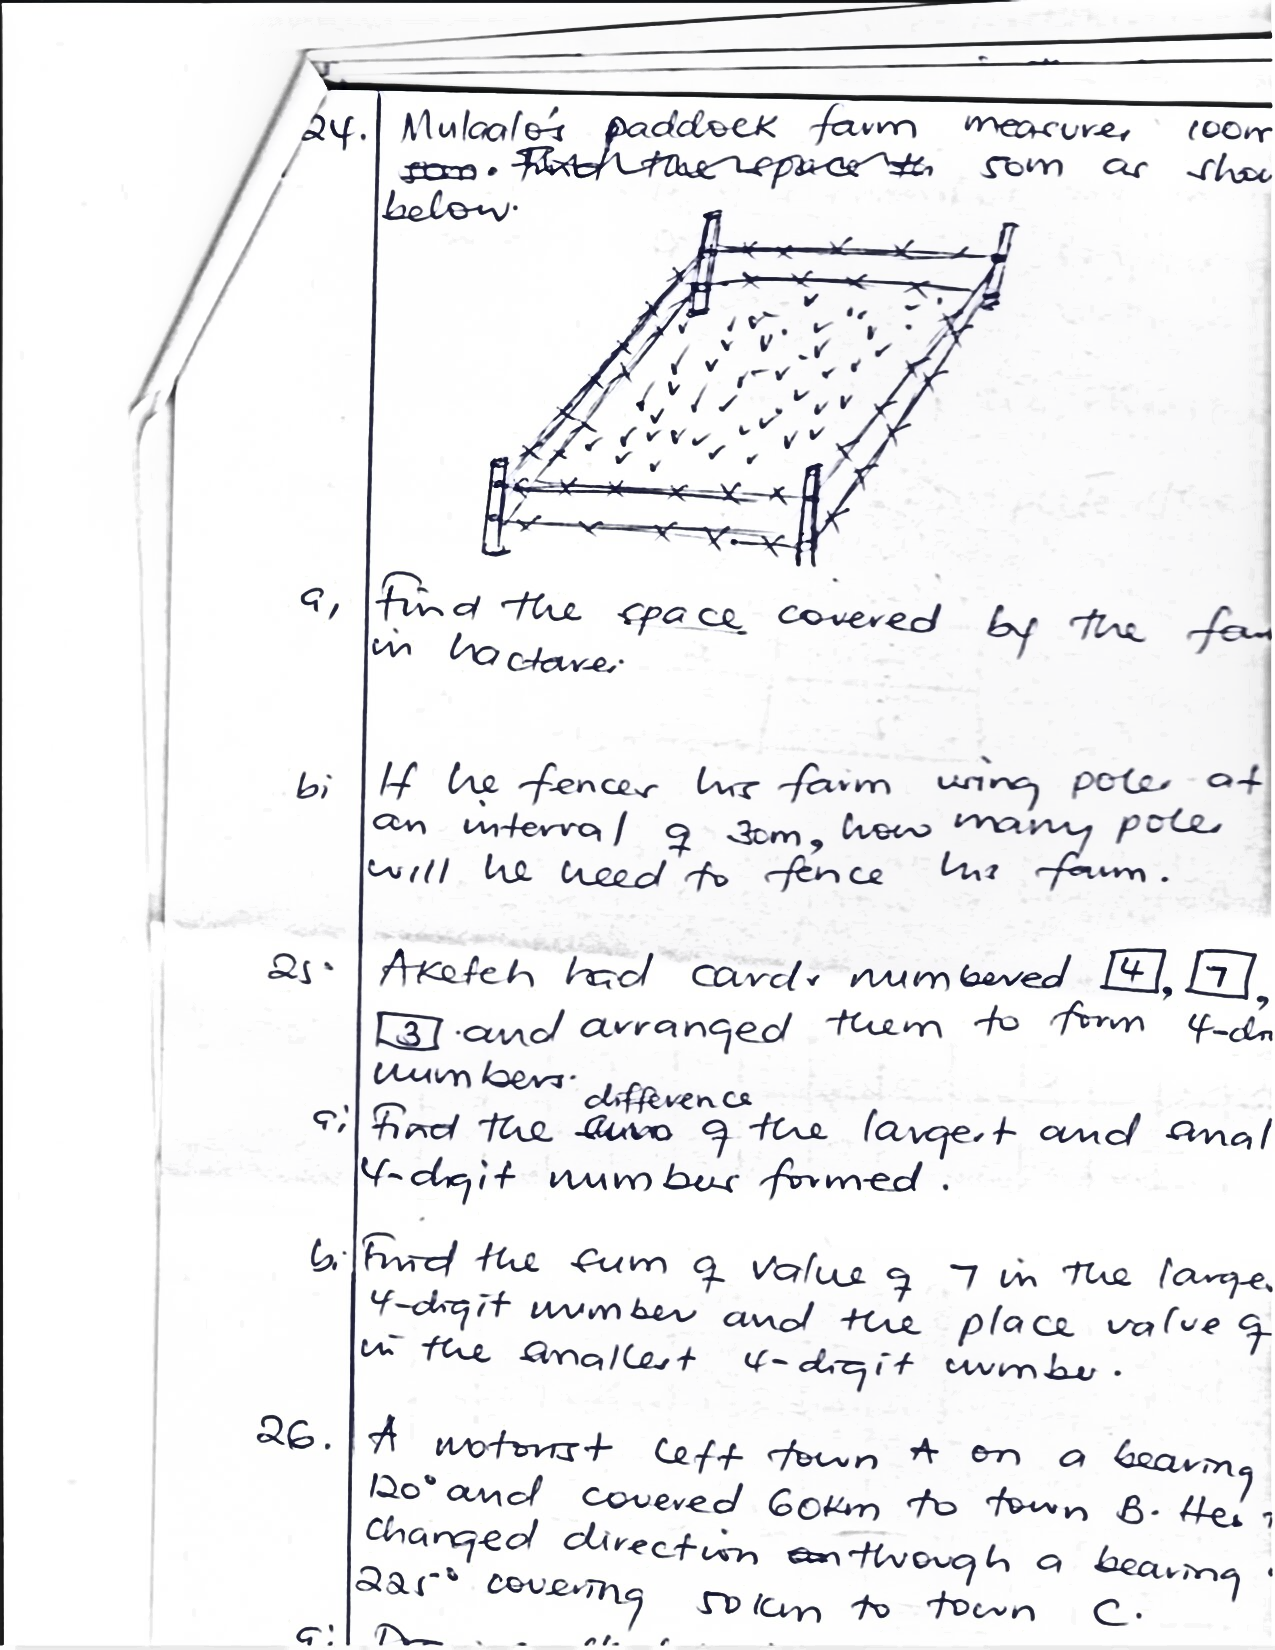 24. Mulaalo's paddock farm measures 100m
50m. Find the space th 50m as show
below.
a, Find the space covered by the fa
in hactares
bi If he fences his farm using poles at
an interval of 30m, how many poles
will he need to fence his farm.
25. Aketch had cards numbered 4, 7,
3 and arranged them to form 4-di
numbers.
difference
a; Find the sum of the largest and smal
4-digit number formed.
b. Find the sum of value of 7 in the large
4-digit number and the place value of
in the smallest 4-digit number.
26. A motorist left town A on a bearing
120° and covered 60km to town B. He
changed direction through a bearing
225° covering 50km to town C.
a: